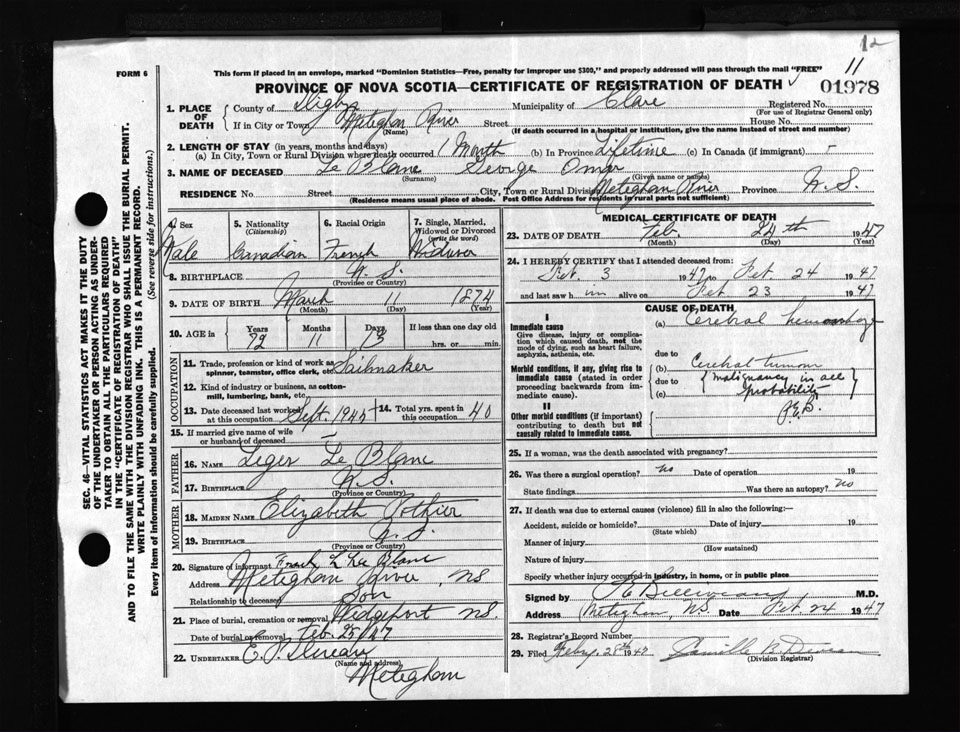 12
11
FORM 6
This form if placed in an envelope, marked "Dominion Statistics—Free, penalty for improper use $300," and properly addressed will pass through the mail "FREE"
PROVINCE OF NOVA SCOTIA—CERTIFICATE OF REGISTRATION OF DEATH
01978
1. PLACE OF DEATH
County of Digby Municipality of Clare Registered No.
(For use of Registrar General only)
If in City or Town Meteghan River Street House No.
(Name) (If death occurred in a hospital or institution, give the name instead of street and number)
2. LENGTH OF STAY (in years, months and days)
(a) In City, Town or Rural Division where death occurred 1 Month (b) In Province Lifetime (c) In Canada (if immigrant) -
3. NAME OF DECEASED Le Blanc George Omer
(Surname) (Given name or names)
RESIDENCE No. Street City, Town or Rural Division Meteghan River Province N.S.
(Residence means usual place of abode. Post Office Address for residents in rural parts not sufficient)
4. Sex Male
5. Nationality (Citizenship) Canadian
6. Racial Origin French
7. Single, Married, Widowed or Divorced (write the word) Widower
8. BIRTHPLACE N.S.
(Province or Country)
9. DATE OF BIRTH March 11 1874
(Month) (Day) (Year)
10. AGE in Years Months Days If less than one day old
72 11 13 hrs. or min.
OCCUPATION
11. Trade, profession or kind of work as spinner, teamster, office clerk, etc. Sailmaker
12. Kind of industry or business, as cotton-mill, lumbering, bank, etc.
13. Date deceased last worked at this occupation Sept. 1945 14. Total yrs. spent in this occupation 40
15. If married give name of wife or husband of deceased
FATHER
16. NAME Leger Le Blanc
17. BIRTHPLACE N.S.
(Province or Country)
MOTHER
18. MAIDEN NAME Elizabeth Pothier
19. BIRTHPLACE N.S.
(Province or Country)
20. Signature of informant Frank L Le Blanc
Address Meteghan River, NS
Relationship to deceased Son
21. Place of burial, cremation or removal Wedgeport NS.
Date of burial or removal Feb 25/47
22. UNDERTAKER E.
(Name and address)
Meteghan
MEDICAL CERTIFICATE OF DEATH
23. DATE OF DEATH Feb. 24th 1947
(Month) (Day) (Year)
24. I HEREBY CERTIFY that I attended deceased from:
Feb. 3 1947 to Feb 24 1947
and last saw him alive on Feb 23 1947
CAUSE OF DEATH
I
Immediate cause
Give disease, injury or complication which caused death, not the mode of dying, such as heart failure, asphyxia, asthenia, etc.
(a) Cerebral hemorrhage
due to
Morbid conditions, if any, giving rise to immediate cause (stated in order proceeding backwards from immediate cause).
(b) Cerebral tumour
due to (malignancy in all
(c) probability)
II
Other morbid conditions (if important) contributing to death but not causally related to immediate cause.
25. If a woman, was the death associated with pregnancy?
26. Was there a surgical operation? no Date of operation 19
State findings Was there an autopsy? no
27. If death was due to external causes (violence) fill in also the following:—
Accident, suicide or homicide? Date of injury 19
(State which)
Manner of injury
(How sustained)
Nature of injury
Specify whether injury occurred in industry, in home, or in public place
Signed by M.D.
Address Meteghan, N.S. Date Feb. 24 1947
28. Registrar's Record Number
29. Filed Feby. 28th 1947 Camille B.
(Division Registrar)
SEC. 46—VITAL STATISTICS ACT MAKES IT THE DUTY
OF THE UNDERTAKER OR PERSON ACTING AS UNDER-
TAKER TO OBTAIN ALL THE PARTICULARS REQUIRED
IN THE "CERTIFICATE OF REGISTRATION OF DEATH"
AND TO FILE THE SAME WITH THE DIVISION REGISTRAR WHO SHALL ISSUE THE BURIAL PERMIT.
WRITE PLAINLY WITH UNFADING INK. THIS IS A PERMANENT RECORD.
Every item of information should be carefully supplied. (See reverse side for instructions.)